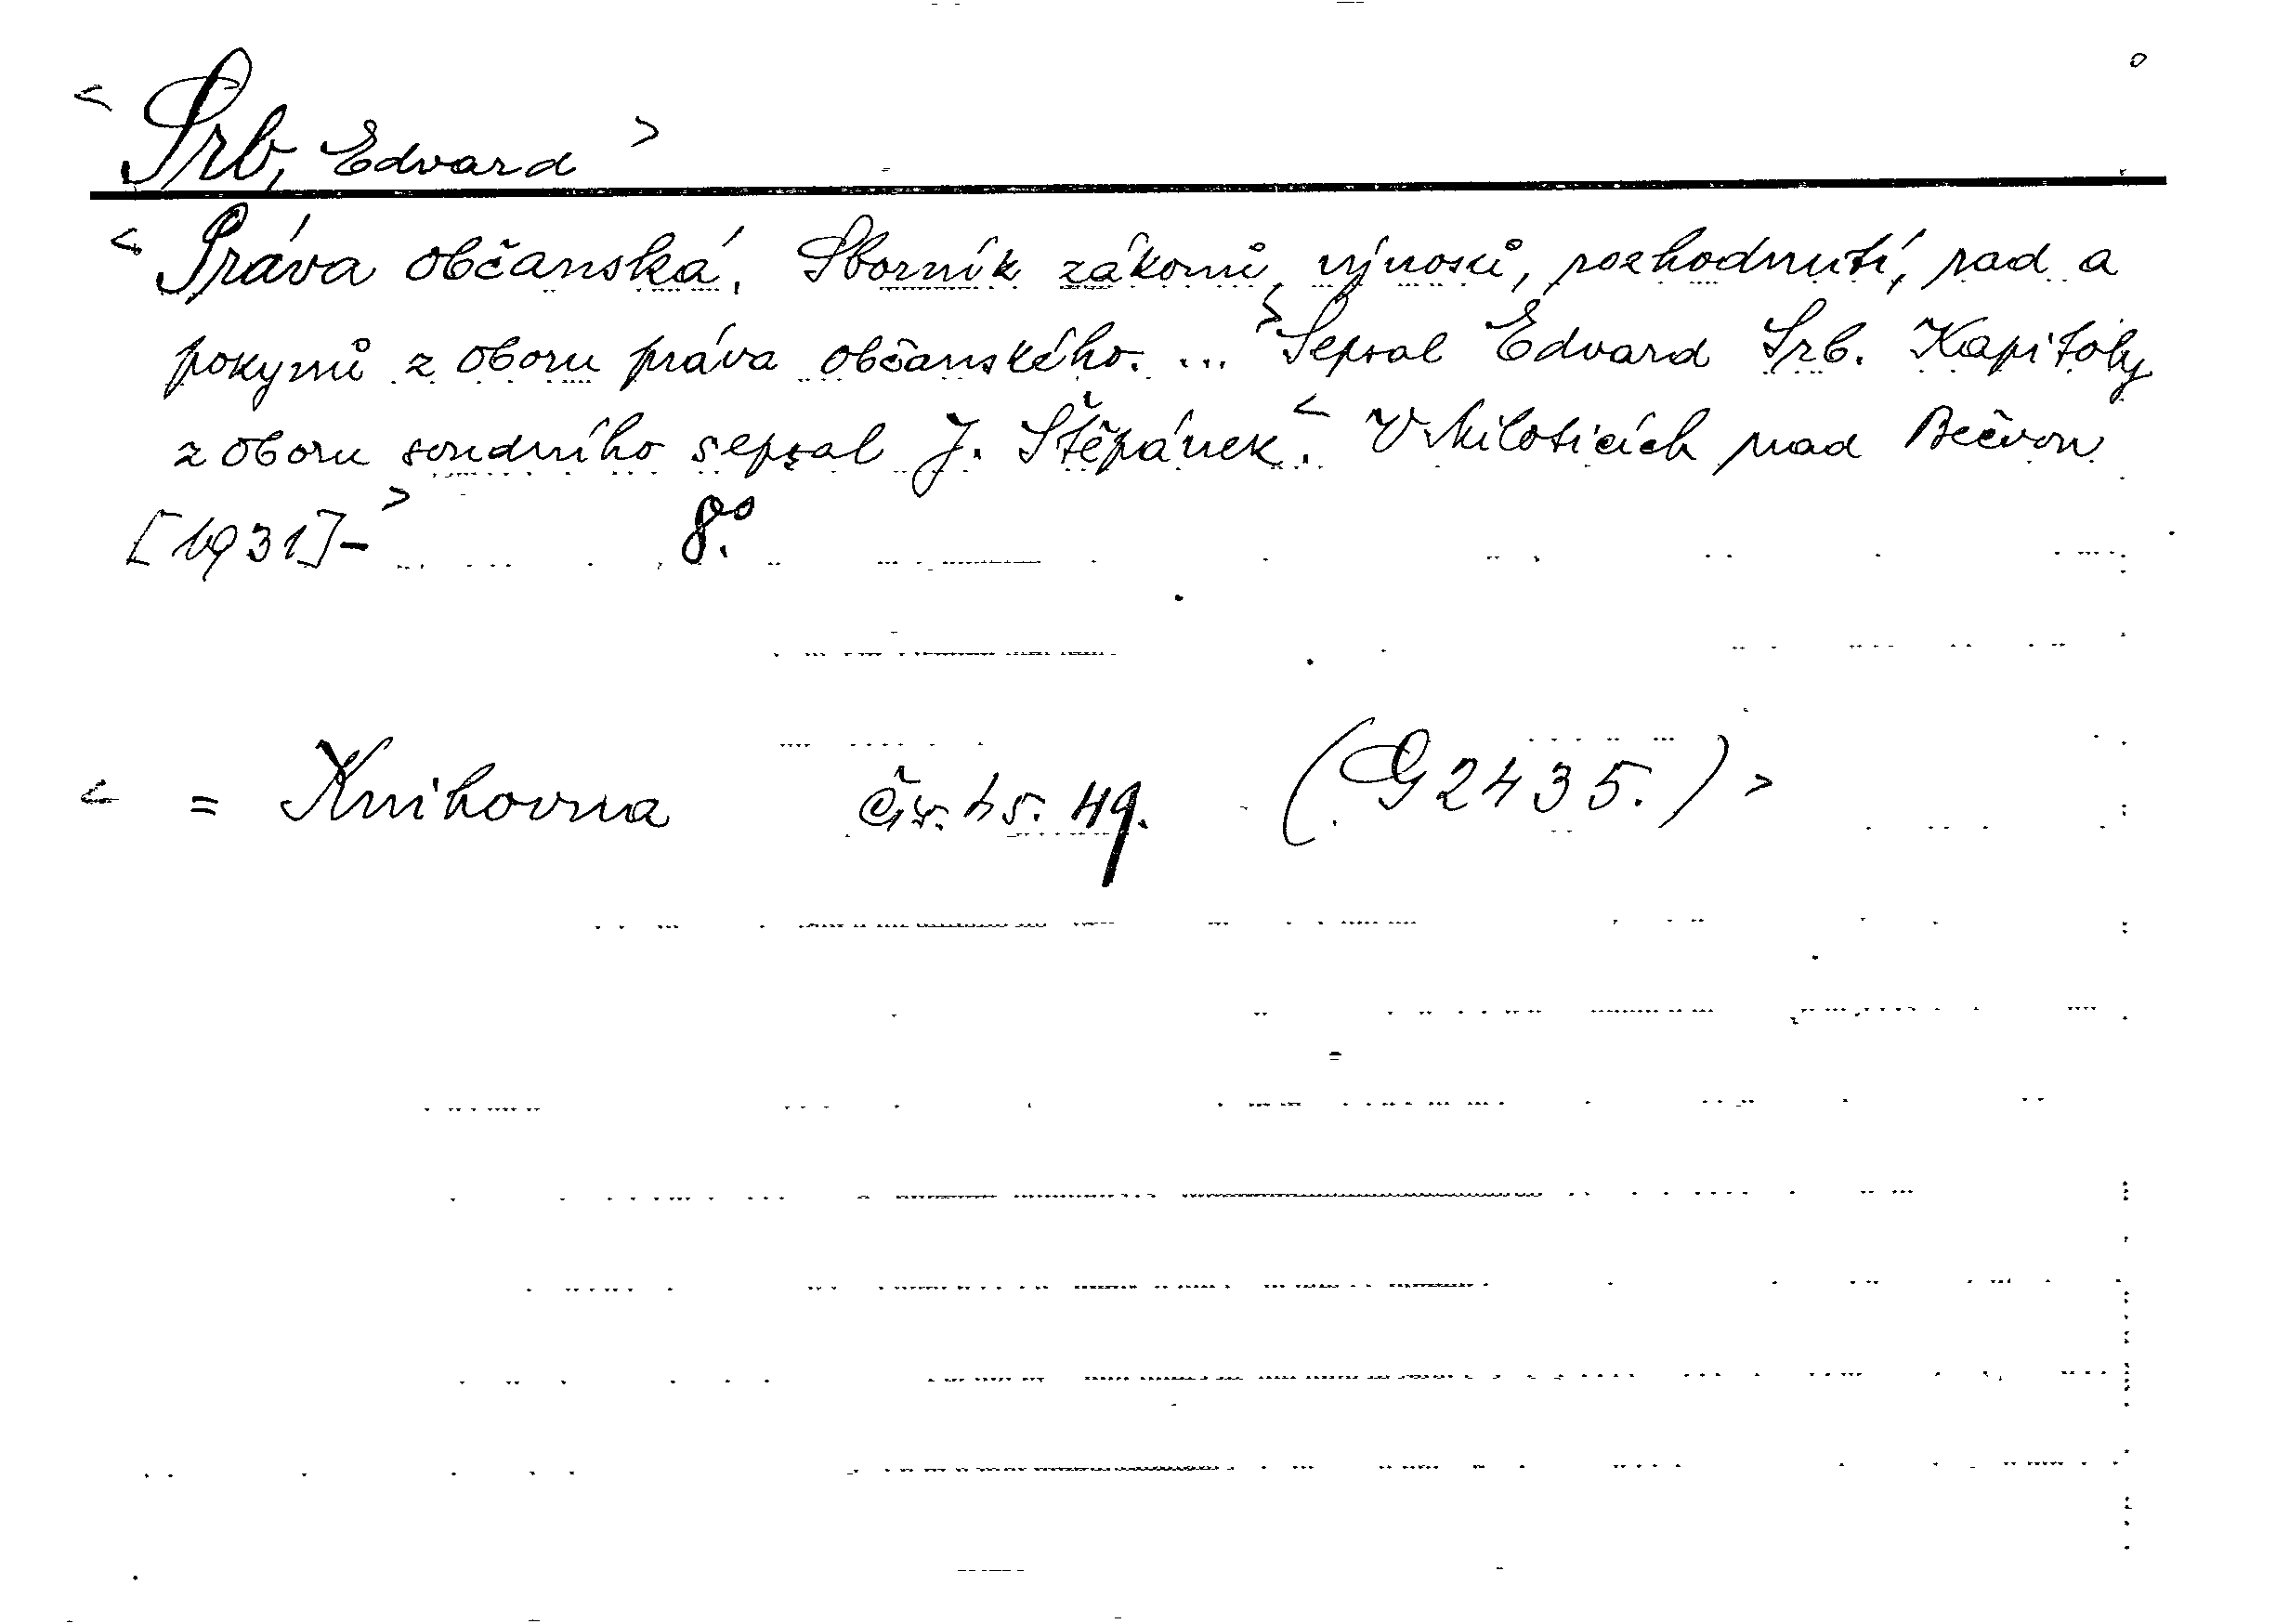 < Srb, Edvard >
< Práva občanská. Sborník zákonů, výnosů, rozhodnutí, rad a
pokynů z oboru práva občanského. ... > Sepsal Edvard Srb. Kapitoly
z oboru soudního sepsal J. Štěpánek. < V Miloticích nad Bečvou
[1931]- > 8°.
< = Knihovna čís. 45. 49. (G 2435.) >